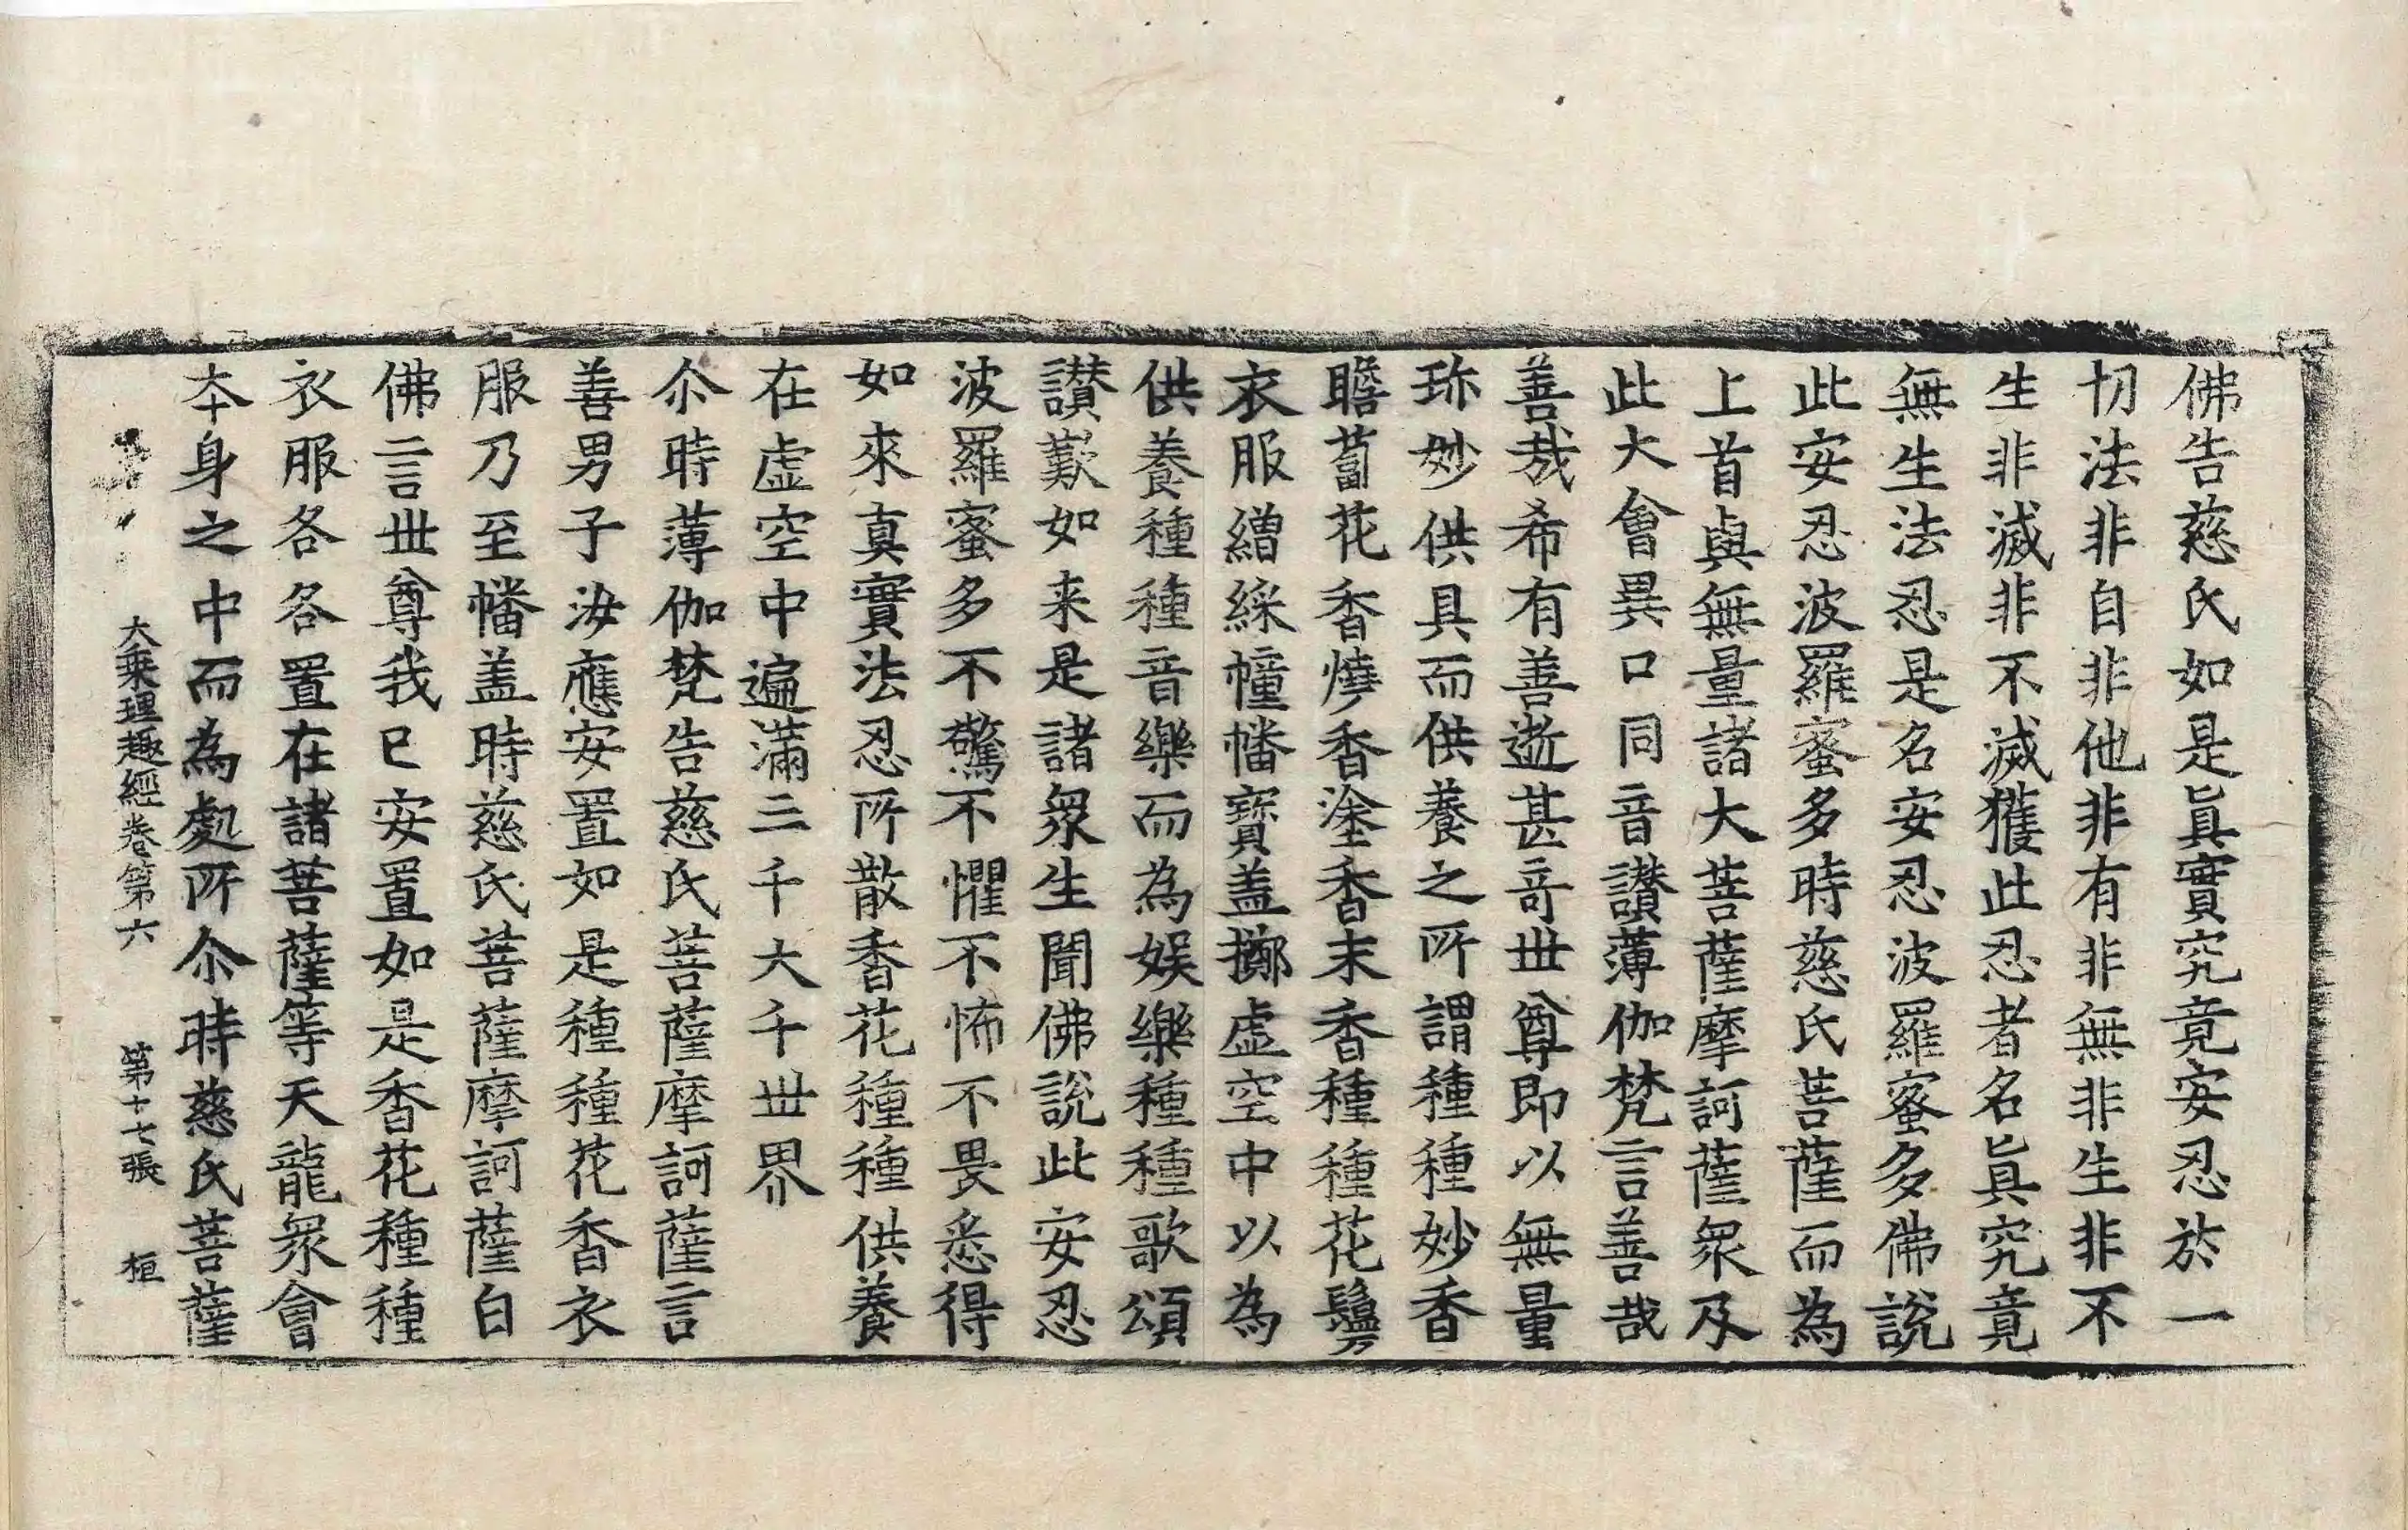 佛告慈氏如是眞實究竟安忍於一
切法非自非他非有非無非生非不
生非滅非不滅獲此忍者名眞究竟
無生法忍是名安忍波羅蜜多佛說
此安忍波羅蜜多時慈氏菩薩而為
上首與無量諸大菩薩摩訶薩衆及
此大會異口同音讃薄伽梵言善哉
善哉希有善逝甚竒丗尊即以無量
珎妙供具而供養之所謂種種妙香
瞻蔔花香燒香塗香末香種種花鬘
衣服繒綵幢幡寳盖擲虛空中以為
供養種種音樂而為娱樂種種歌頌
讃歎如来是諸衆生聞佛說此安忍
波羅蜜多不驚不懼不怖不畏悉得
如來真實法忍所散香花種種供養
在虛空中遍滿三千大千丗界
尒時薄伽梵告慈氏菩薩摩訶薩言
善男子汝應安置如是種種花香衣
服乃至幡盖時慈氏菩薩摩訶薩白
佛言丗尊我已安置如是香花種種
衣服各各置在諸菩薩等天龍衆會
夲身之中而為處所尒時慈氏菩薩
大乘理趣經卷第六 第十七張 桓